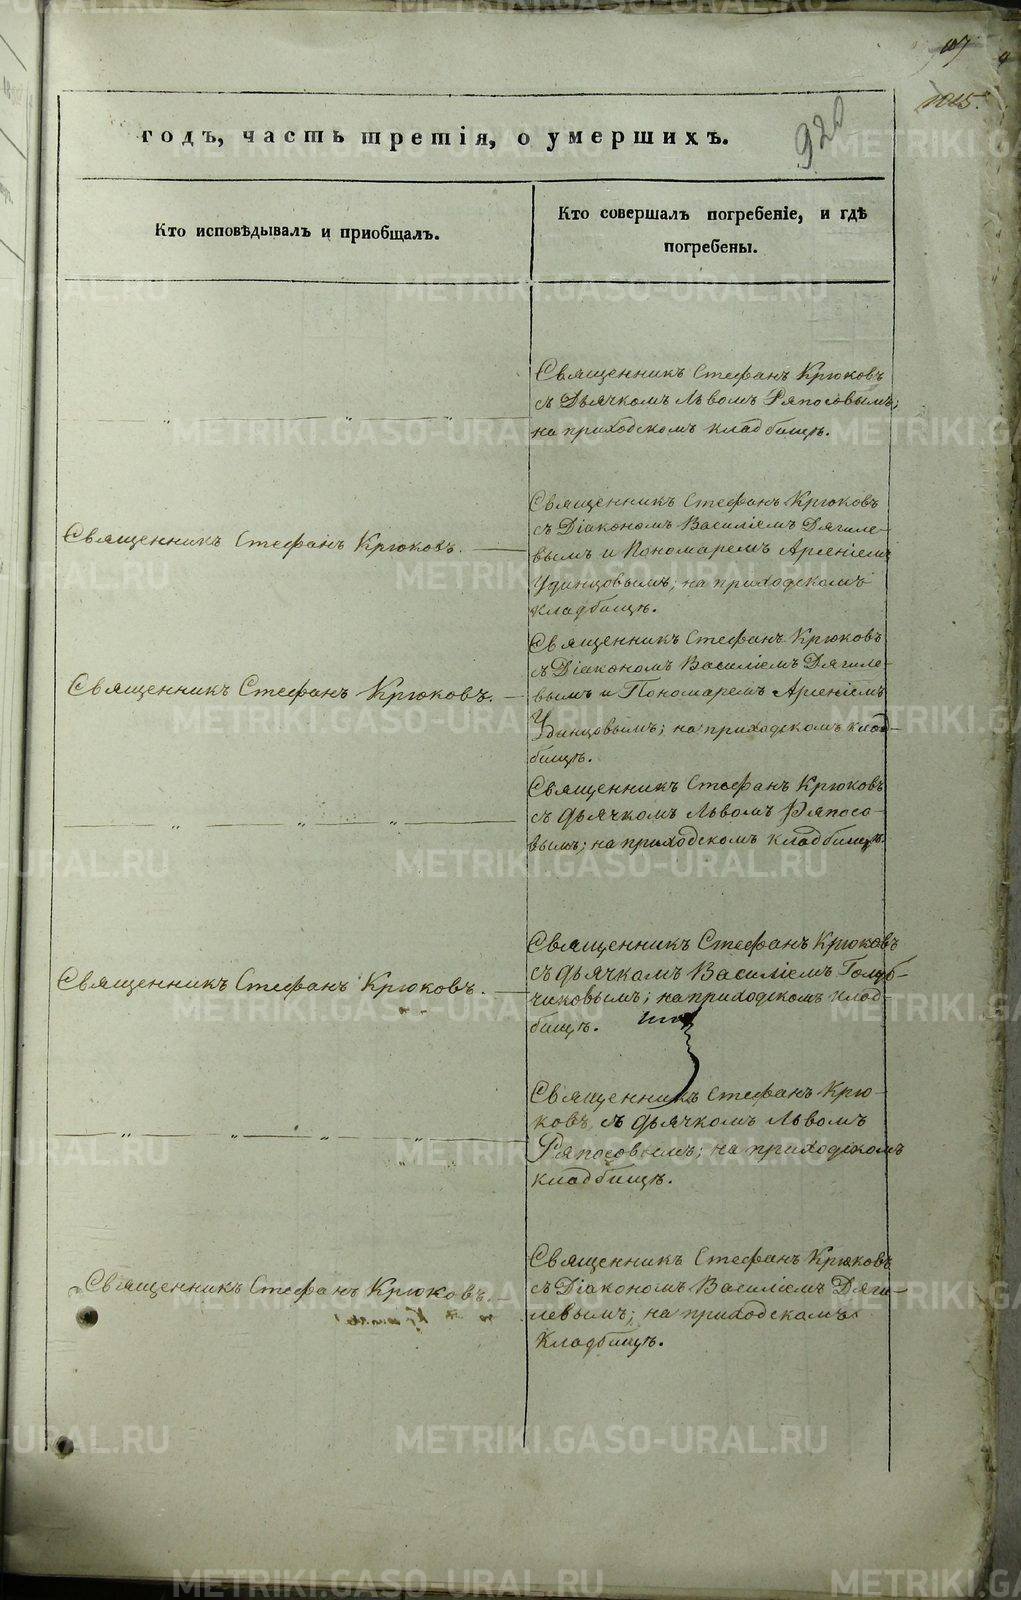 1025.
920
годъ, часть третія, о умершихъ.
Кто исповѣдывалъ и пріобщалъ.
Кто совершалъ погребеніе, и гдѣ
погребены.
Священникъ Стефанъ Крюковъ
съ Дьячкомъ Львомъ Ряпосовымъ;
на приходскомъ кладбищѣ.
Священникъ Стефанъ Крюковъ.
Священникъ Стефанъ Крюковъ
съ Діакономъ Василіемъ Дягиле-
вымъ и Пономаремъ Арсеніемъ
Удинцовымъ; на приходскомъ
кладбищѣ.
Священникъ Стефанъ Крюковъ.
Священникъ Стефанъ Крюковъ
съ Діакономъ Василіемъ Дягиле-
вымъ и Пономаремъ Арсеніемъ
Удинцовымъ; на приходскомъ клад-
бищѣ.
Священникъ Стефанъ Крюковъ
съ дьячкомъ Львомъ Ряпосо-
вымъ; на приходскомъ кладбищѣ.
Священникъ Стефанъ Крюковъ.
Священникъ Стефанъ Крюковъ
съ дьячкомъ Василіемъ Голуб-
чиковымъ; на приходскомъ клад-
бищѣ.
Священникъ Стефанъ Крю-
ковъ съ дьячкомъ Львомъ
Ряпосовымъ; на приходскомъ
кладбищѣ.
Священникъ Стефанъ Крюковъ.
Священникъ Стефанъ Крюковъ
съ Діакономъ Василіемъ Дяги-
левымъ; на приходскомъ
Кладбищѣ.
METRIKI.GASO-URAL.RU